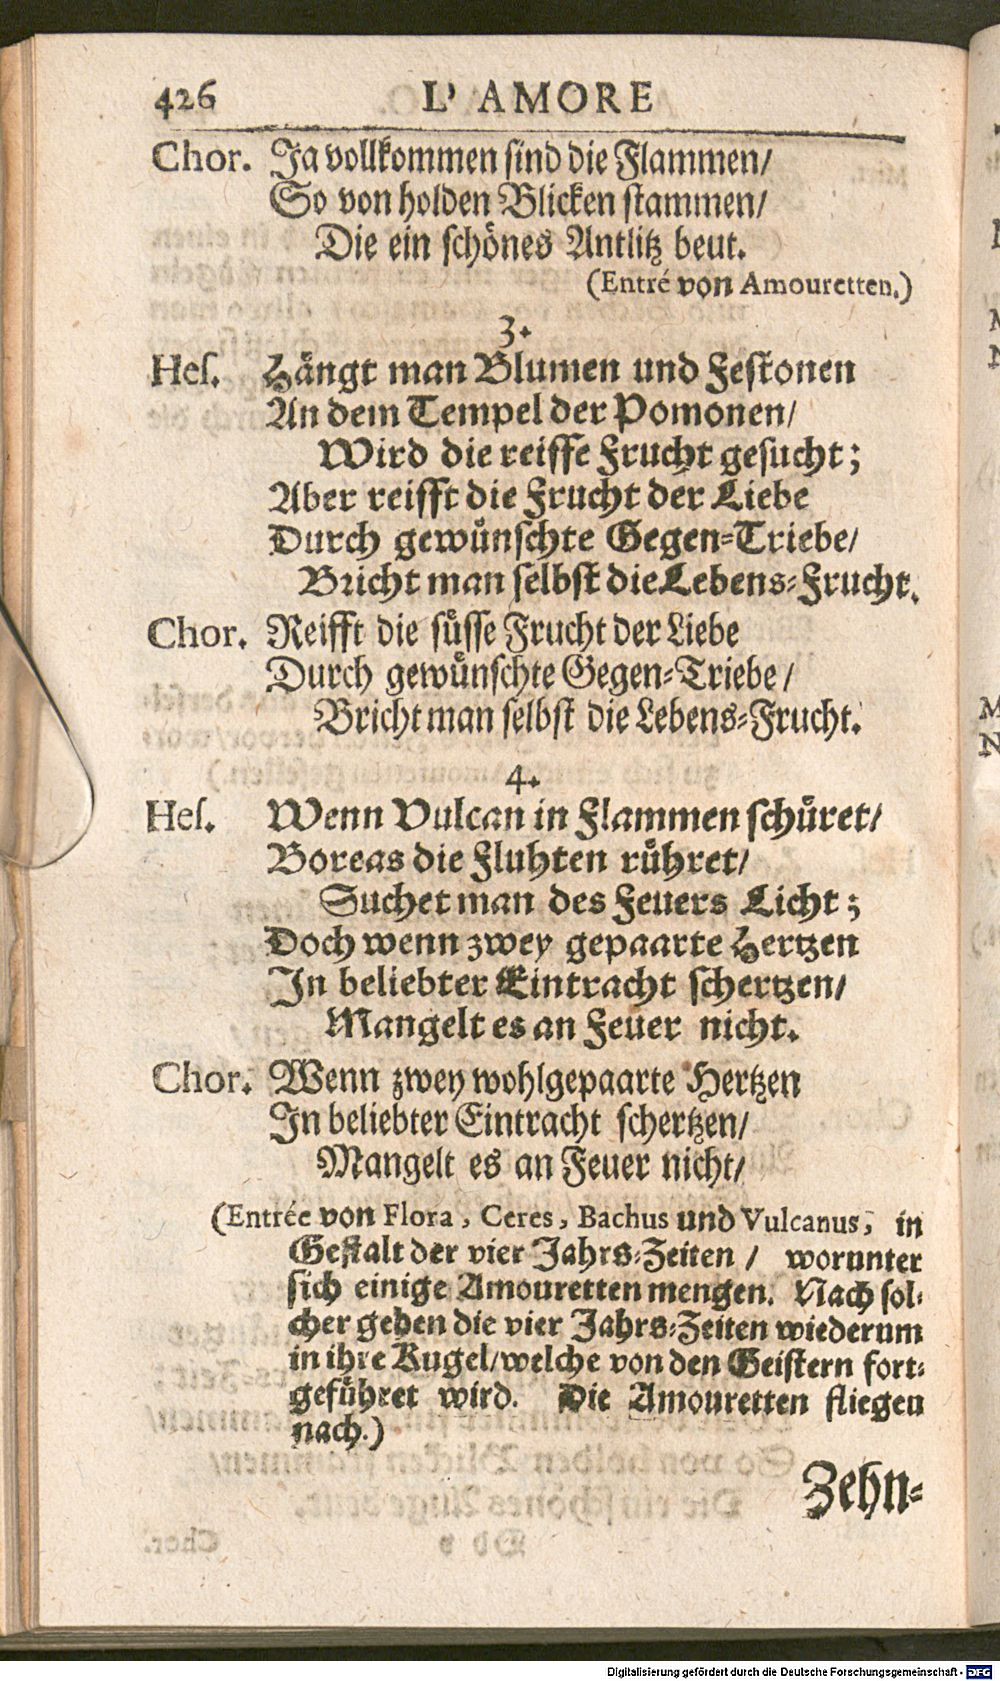 426 L' AMORE
Chor. Ja vollkommen sind die Flammen/
So von holden Blicken stammen/
Die ein schönes Antlitz beut.
(Entré von Amouretten.)
3.
Hes. Hängt man Blumen und Festonen
An dem Tempel der Pomonen/
Wird die reiffe Frucht gesucht;
Aber reifft die Frucht der Liebe
Durch gewünschte Gegen=Triebe/
Bricht man selbst die Lebens=Frucht.
Chor. Reifft die süsse Frucht der Liebe
Durch gewünschte Gegen=Triebe/
Bricht man selbst die Lebens=Frucht.
4.
Hes. Wenn Vulcan in Flammen schüret/
Boreas die Fluhten rühret/
Suchet man des Feuers Licht;
Doch wenn zwey gepaarte Hertzen
In beliebter Eintracht schertzen/
Mangelt es an Feuer nicht.
Chor. Wenn zwey wohlgepaarte Hertzen
In beliebter Eintracht schertzen/
Mangelt es an Feuer nicht/
(Entrée von Flora, Ceres, Bachus und Vulcanus, in
Gestalt der vier Jahrs=Zeiten / worunter
sich einige Amouretten mengen. Nach sol=
cher gehen die vier Jahrs=Zeiten wiederum
in ihre Kugel/welche von den Geistern fort=
geführet wird. Die Amouretten fliegen
nach.)
Zehn=
Digitalisierung gefördert durch die Deutsche Forschungsgemeinschaft - DFG